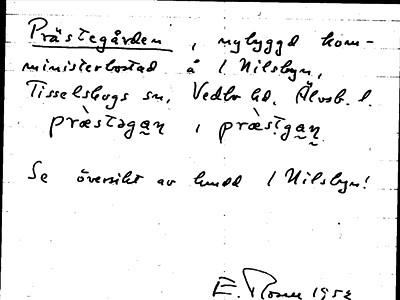 Prästegården, nybyggd kom-
ministerbostad å 1 Nilsbyn,
Tisselskogs sn, Vedbo hd, Älvsb. l.
præ̀stəga̰n̰, præ̀sṭga̰n̰
Se översikt av hmdd 1 Nilsbyn!
E. Rosen 1952